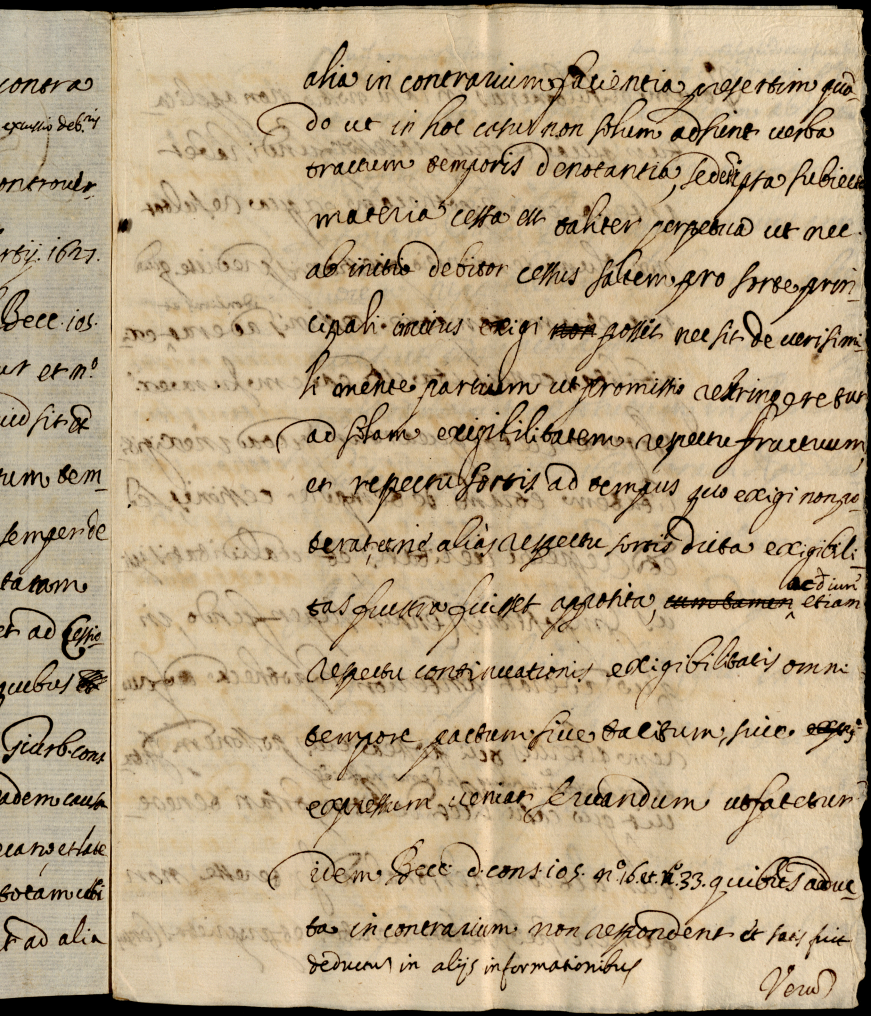 contra
excussio deb.ris
controver-
rtij. 1627.
Becc. 105.
ur et n.º
tum tem-
semper de
tatam
et ad Cessio
quibus
Giurb. cons
adem causa
totam ubi
et ad alia
alia in contrarium facientia presertim quā-
do ut in hoc casu non solum adsunt uerba
tractum temporis denotantia, sed ipsa subiecta
materia cessa est taliter perpetua ut nec
ab initio debitor cessus saltem pro sorte prin-
cipali inuitus exigi non possit nec sit de uerisimi-
li mente partium ut promissio restringeretur
ad solam exigibilitatem respectu fructuum,
et respectu sortis ad tempus quo exigi non po-
terat, alias respectu sortis dicta exigibili-
tas frustra fuisset apposita, cum tamen etiam
respectu continuationis exigibilitatis omni
tempore pactum siue tacitum, siue
expressum ueniat seruandum ut fatetur
idem Becc. d. cons. 105. n.º 16. et n.º 33. quibus adduc-
ta in contrarium non respondent et satis fuit
deductus in alijs informationibus
Verū